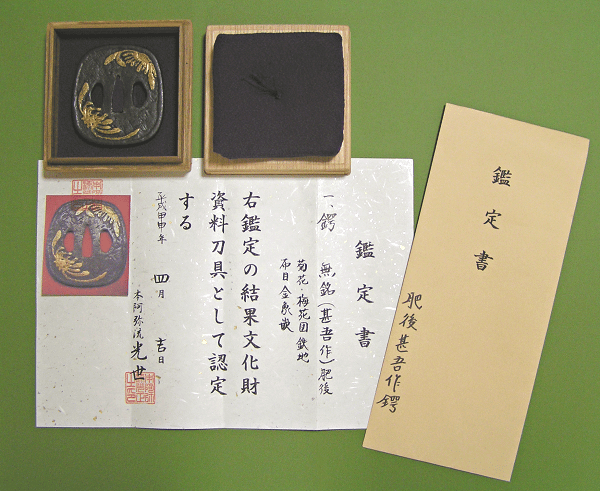 鑑定書
一、鍔 無銘(甚吾作)肥後
菊花・梅花図 鉄地
布目金象嵌
右鑑定の結果文化財
資料刀具として認定
する
平成甲申年 四月 吉日
本阿弥流 光世
鑑定書
肥後甚吾作鍔